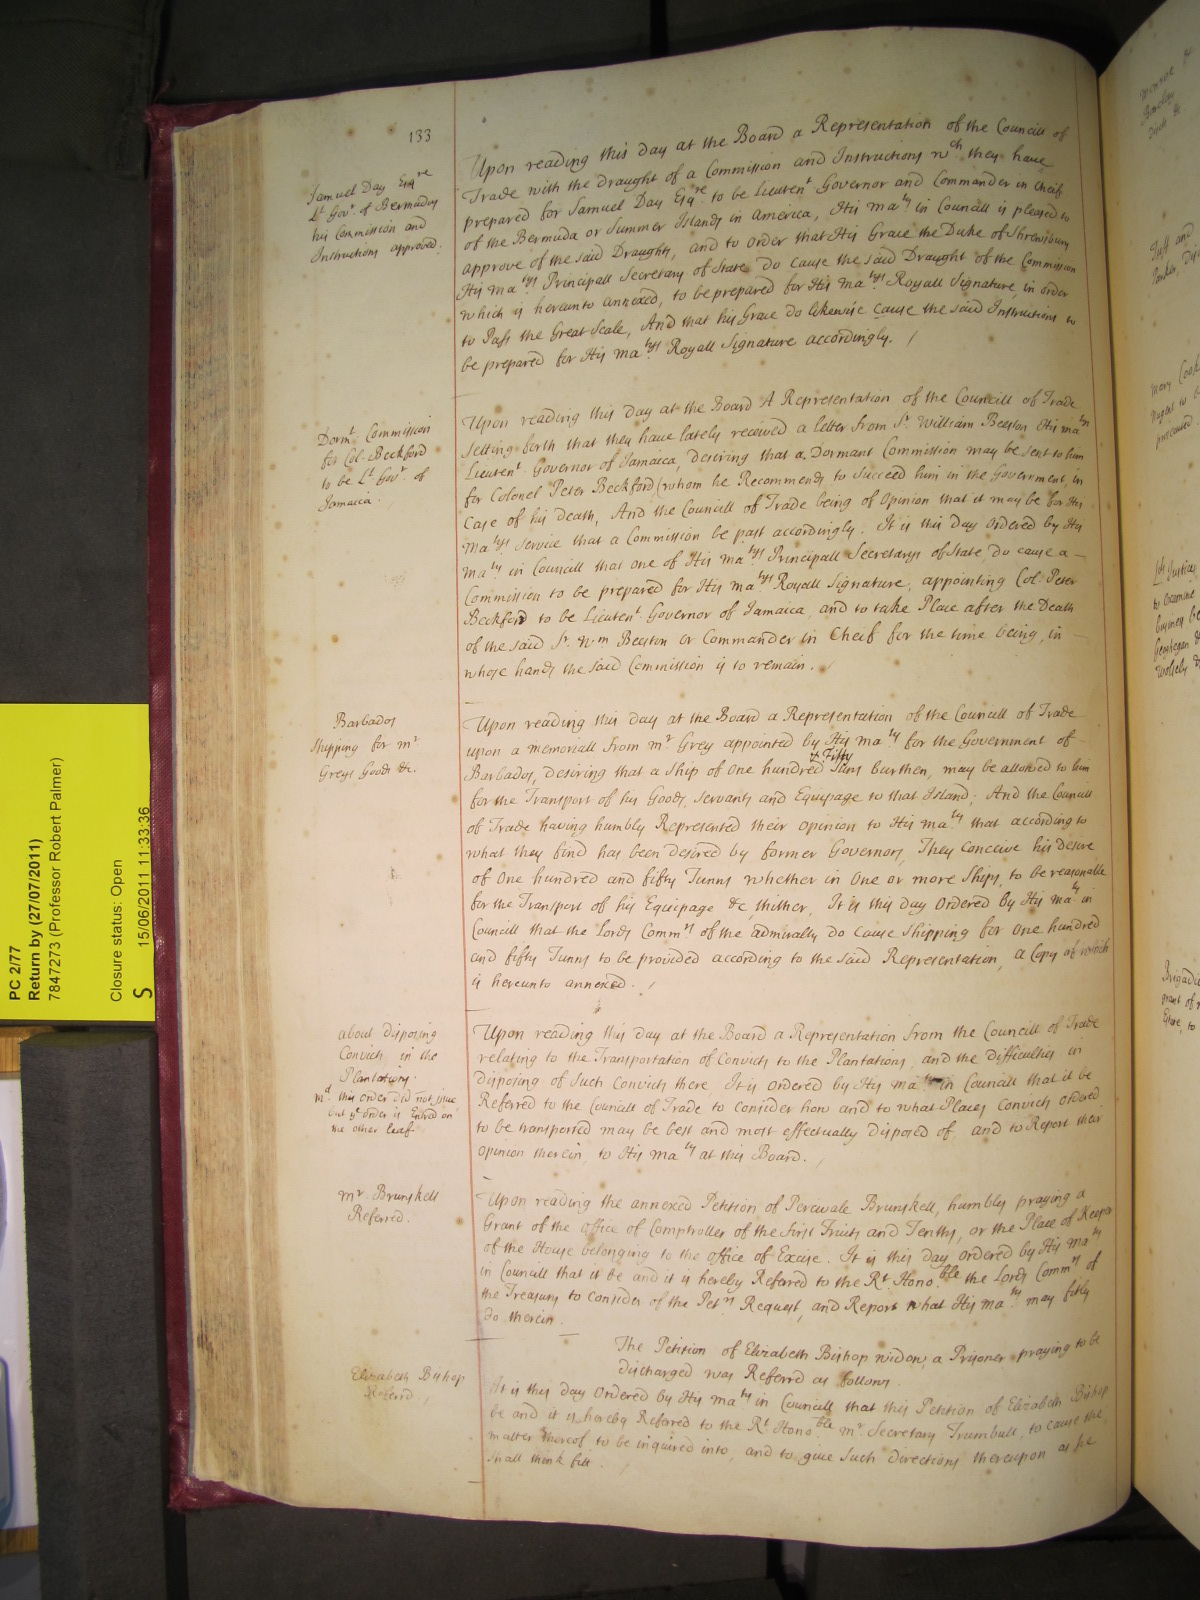 133
Samuel Day Esqre
Lt Govr. of Bermudas
his Commission and
Instructions approved.
Upon reading this day at the Board a Representation of the Councill of
Trade with the draught of a Commission and Instructions wch they have
prepared for Samuel Day Esqre to be Lieutent Governor and Commander in Cheif
of the Bermuda or Summer Islands in America, His Maty in Councill is pleased to
approve of the said Draughts, and to order that His Grace the Duke of Shrewsbury
His Matys Principall Secretary of State do cause the said Draught of the Commission
which is hereunto annexed, to be prepared for His Matys Royall Signature, in order
to Pass the Great Seale, And that his Grace do likewise cause the said Instructions to
be prepared for His Matys Royall Signature accordingly. /
Dormt Commission
for Col. Beckford
to be Lt Govr. of
Jamaica.
Upon reading this day at the Board A Representation of the Councill of Trade
setting forth that they have lately received a letter from Sr. William Beeston His Matys
Lieutent Governor of Jamaica, desiring that a Dormant Commission may be sent to him
for Colonel Peter Beckford (whom he Recommends to succeed him in the Government, in
Case of his Death, And the Councill of Trade being of Opinion that it may be for His
Matys Service that a Commission be past accordingly. It is this day ordered by His
Maty in Councill that one of His Matys Principall Secretarys of State, do cause a
Commission to be prepared for His Matys Royall Signature, appointing Col: Peter
Beckford to be Lieutent Governor of Jamaica, and to take Place after the Death
of the said Sr. Wm Beeston or Commander in Cheif for the time being, in
whose hands the said Commission is to remain. /
Barbados
Shipping for Mr
Greys Goods &c.
Upon reading this day at the Board a Representation of the Councill of Trade
upon a memoriall from Mr Grey appointed by His Maty for the Government of
& Fifty
Barbados, desiring that a Ship of One hundred Tuns burthen, may be allowed to him
for the Transport of his Goods, Servants and Equipage to that Island; And the Councill
of Trade having humbly Represented their opinion to His Maty that according to
what they find has been desired by former Governors, They conceive his desire
of One hundred and fifty Tunns whether in one or more Ships, to be reasonable
for the Transport of his Equipage &c, thither, It is this day Ordered by His Maty in
Councill that the Lords Commrs of the Admiralty do cause Shipping for one hundred
and fifty Tunns to be provided according to the said Representation, a Copy of which
is hereunto annexed. /
about disposing
Convicts in the
Plantations.
Md. this order did not issue
but ye order is Entred on
the other leaf.
Upon reading this day at the Board a Representation from the Councill of Trade
relating to the Transportation of Convicts to the Plantations, and the difficulties in
disposing of such Convicts there, It is ordered by His Maty in Councill that it be
Referred to the Councill of Trade to consider how and to what Places Convicts ordered
to be transported may be best and most effectually disposed of, and to Report their
opinion therein, to His Maty at this Board. /
Mr. Brunskell
Referred.
Upon reading the annexed Petition of Percivale Brunskell, humbly praying a
Grant of the office of Comptroller of the First Fruits and Tenths, or the Place of Keeper
of the House belonging to the office of Excise. It is this day ordered by His Maty
in Councill that it be and it is hereby Referred to the Rt Honoble the Lords Commrs of
the Treasury to consider of the Petrs Request, and Report what His Maty may fitly
do therein.
Elizabeth Bishop
Referrd. /
The Petition of Elizabeth Bishop widow, a Prisoner praying to be
discharged was Referrd as follows
It is this day Ordered by His Maty in Councill that this Petition of Elizabeth Bishop
be and it is hereby Referred to the Rt Honoble Mr Secretary Trumball, to cause the
matter thereof to be inquired into, and to give such directions thereupon as he
shall think fitt.
PC 2/77
Return by (27/07/2011)
7847273 (Professor Robert Palmer)
Closure status: Open
S 15/06/2011 11:33:36